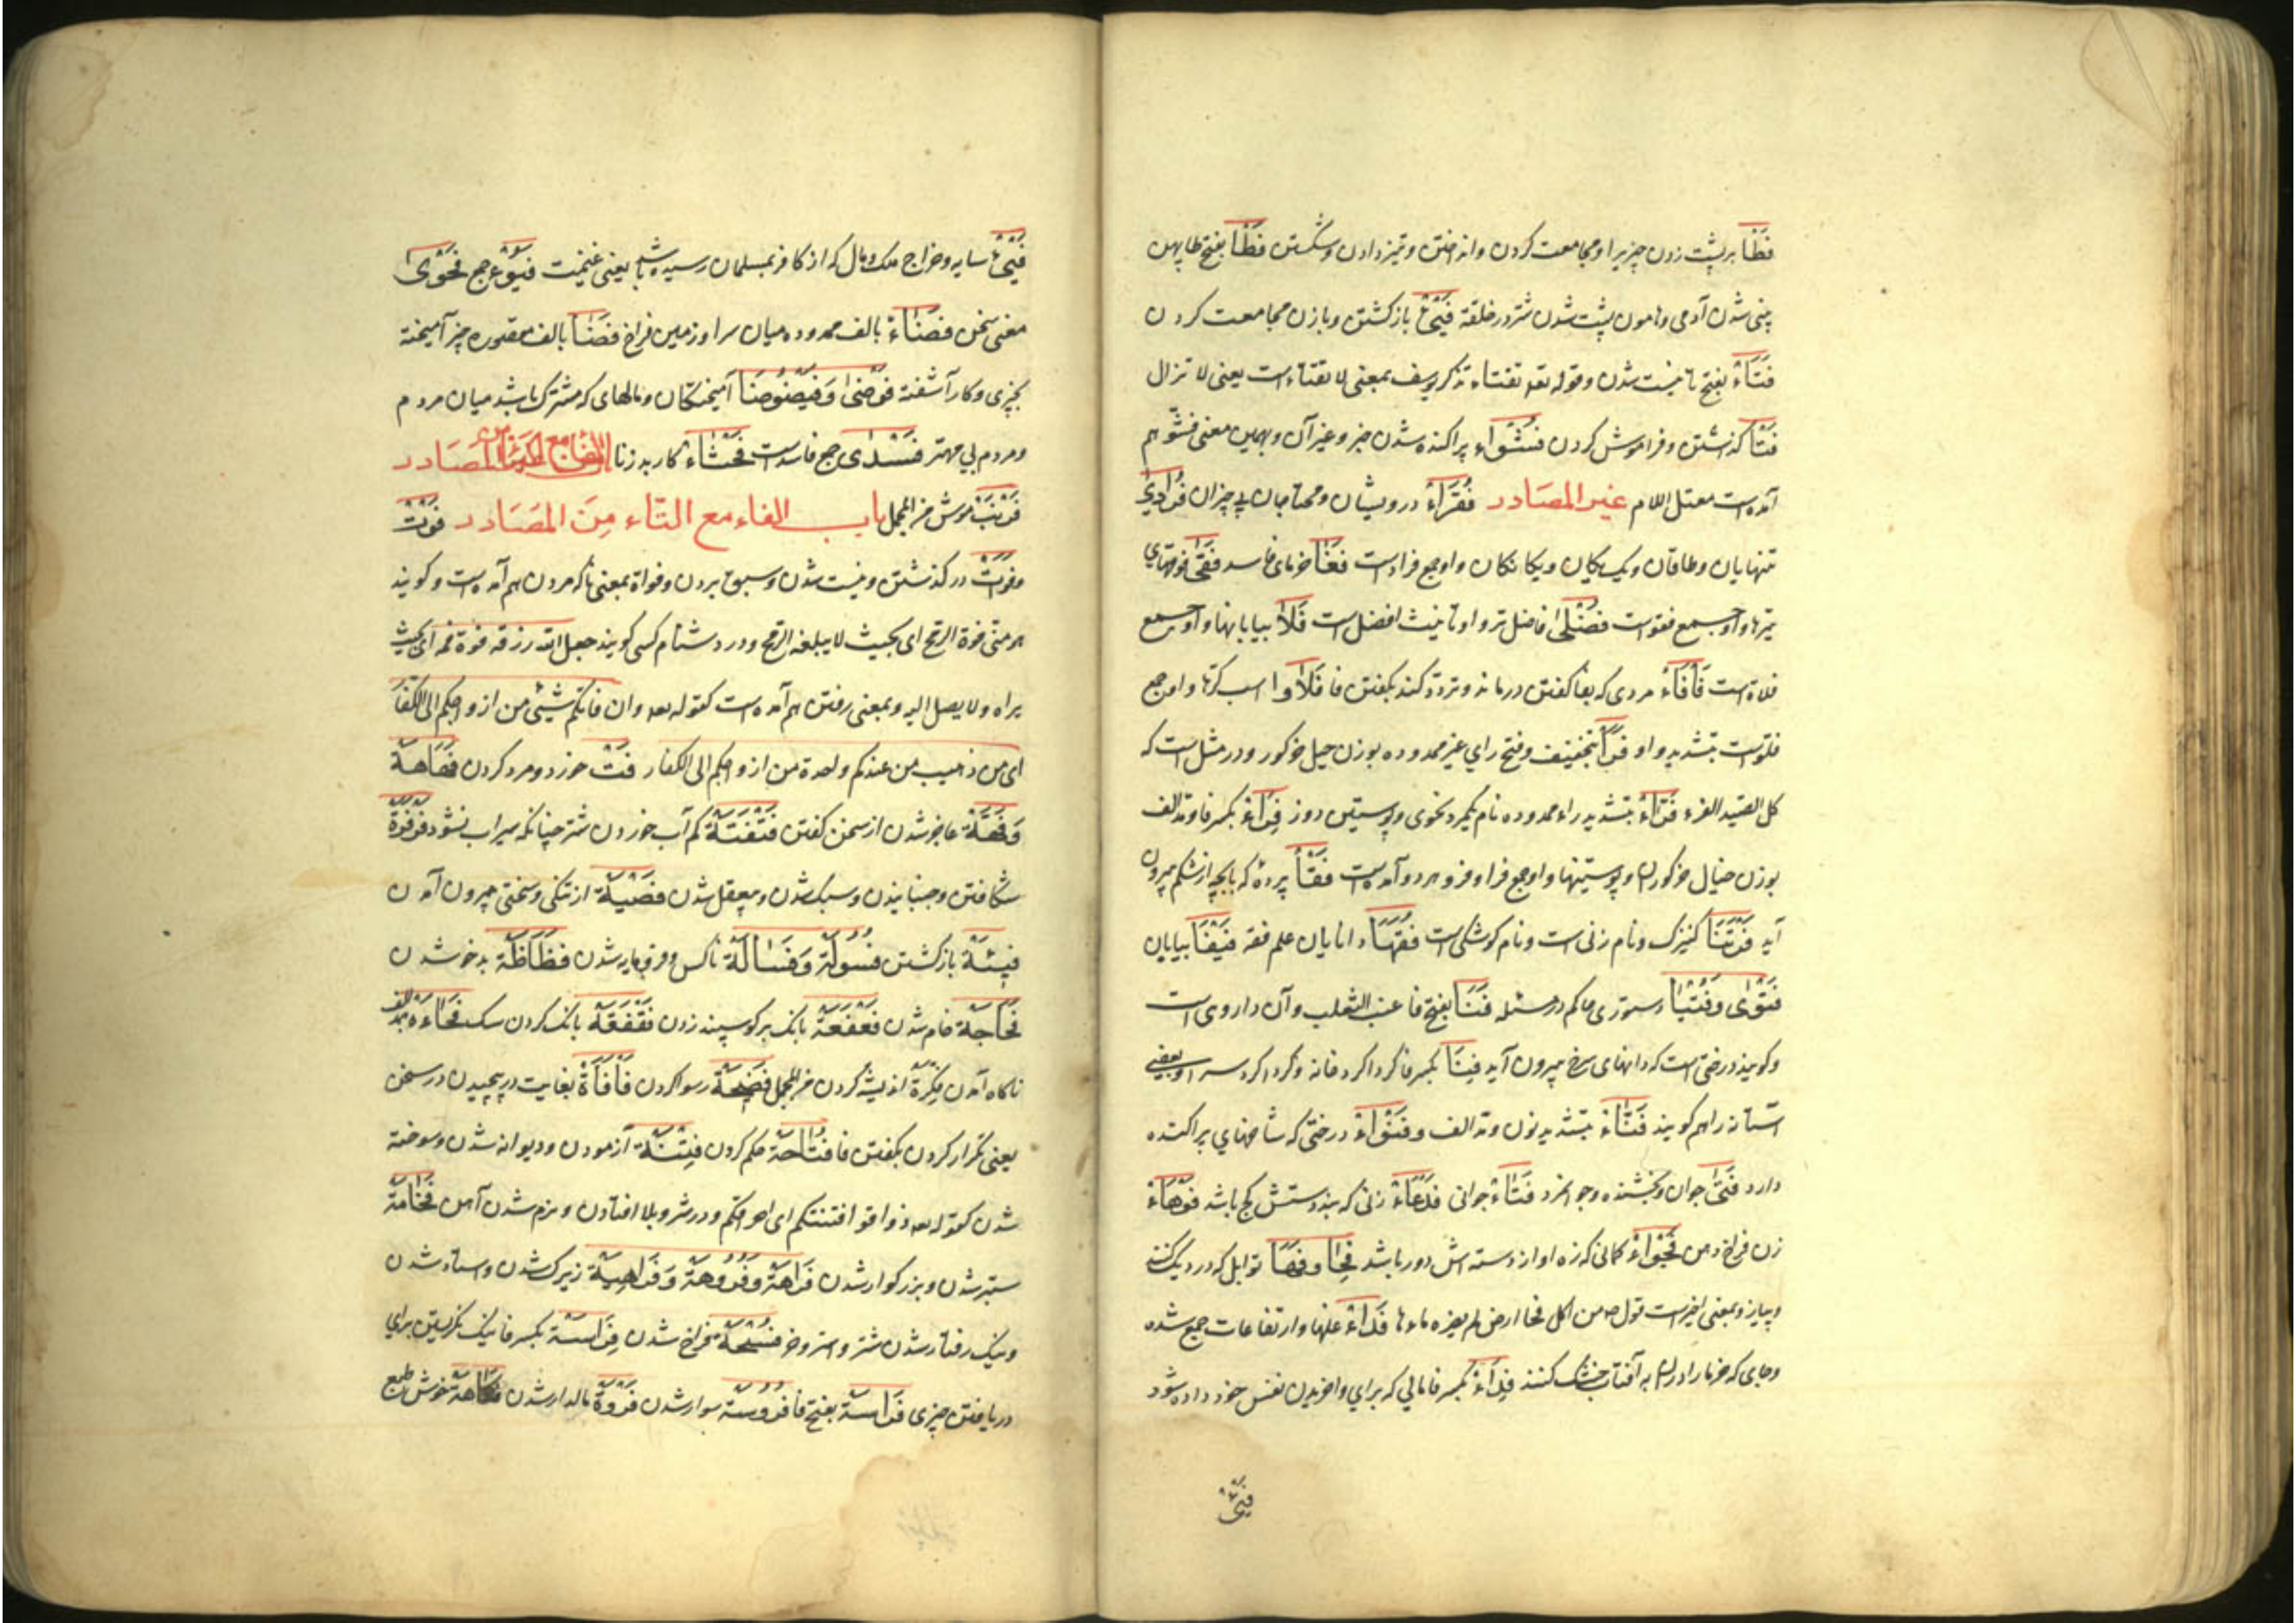 فَطَأ بر پشت زدن چیزیرا و مجامعت کردن وانداختن وتیز دادن وشکستن فَطَأ بفتح طا پهن
بینی شدن آدمی وهامون پشت شدن شتر در خلقة فَیْئ بازکشتن وبازن مجامعت کردن
فَتَاءْ بفتح تا نیست شدن وقوله تفتاء تذکر یوسف بمعنی لا تفتاء است یعنی لا تزال
فتأ کذاشتن وفراموش کردن فُشُوّاء پراکنده شدن خبر وغیر آن وبهمین معنی فشُوّ هم
آمده است معتل اللام غیر المصَادر فُقَرَاءْ درویشان ومحتاجان بی چیزان فُرَادیٰ
تنهایان وطاقان ویک یکان ویکانکان واو جمع فرد است فَغَا خرمای فاسد فُقَیٰ فوقهای
تیرها واو جمع فقوه است فُضْلیٰ فاضل تر واو تانیث افضل است فَلَا بیابانها واو جمع
فلاة است فَأفَاءْ مردی که بفا کفتن درماند وتردد کند بکفتن فا فَلَاوا اسب کرها واو جمع
فلوّ است بتشدید واو فَرَأ بتخفیف وفتح رای غیر ممدوده بوزن جبل خرکور ودر مثل است که
کل الصید الفرء فَرّاءْ بتشدید راء ممدوده نام یکمرد نحوی وپوستین دوز فِرَاءْ بکسر فا ومد الف
بوزن خیال خرکوران وپوستینها واو جمع فرا وفرو هر دو آمده است فَقْأ پرده که با بچه از شکم بیرون
آید فَرْتَنَا کنیزک ونام زنی است ونام کوشکی است فُقَهَا دانایان علم فقه فَیْفَا بیابان
فَتْوٰی وَفُتْیَا دستوری حاکم در مسئله فَنَا بفتح فا عنب الثعلب وآن داروی است
وکویند درختی است که دانهای سرخ بیرون آید فِنَا بکسر فا کرداکرد خانه وکرداکرد سرا وبعضی
آستانه را هم کویند فَنّاءْ بتشدید نون ومد الف وفَنْوَاءْ درختی که شاخهای پراکنده
دارد فَتیٰ جوان وبخشنده وجوانمرد فَتَاءْ جوانی فَدْعَاءْ زنی که بند دستش کج باشد فَوْهَاءْ
زن فراخ دهن فَجْوَاءْ کمانی که زه او از دسته اش دور باشد فَحَا وفِحَا توابل که در دیک کنند
وپیاز وبمعنی اخیر است قول من اکل فحا ارض لم یضره ماءها فَدَاءْ غلها وارتفاعات جمع شده
وجای که خرما را در آن به آفتاب خشک کنند فِدَاءْ بکسر فا مالی که برای واخریدن نفس خود داده شود
فَیْئ
فَیْئ سایه وخراج ملک ومال که از کافر بمسلمان رسیده باشد یعنی غنیمت فُیُوْءْ جمع فَحْوٰی
معنی سخن فَضَاءْ بالف ممدوده میان سرا وزمین فراخ فَضَا بالف مقصوره چیز آمیخته
بچیزی وکار آشفته فَوْضیٰ وَفَیْضُوْضَا آمیختکان ومالهای که مشترک باشد میان مردم
ومردم بی مهتر فَسْدیٰ جمع فاسد است فَحْشَاءْ کار بد زنا المصَادر
فَرْنَبْ موش من المجمل باب الفاء مع التاء مِنَ المصَادر فَوْتْ
وفَوَتْ درکذشتن ونیست شدن وسبق بردن وفواة بمعنی ناکه مردن هم آمده است وکویند
هو منی فوة الرمح ای بحیث لا یبلغه الرمح ودر دشنام کسی کویند جعل الله رزقه فوة فمه ای بحیث
یراه ولا یصل الیه وبمعنی رفتن هم آمده است کقوله وان فاتکم شیئ من ازواجکم الی الکفار
ای من ذهب من عندکم واحدة من ازواجکم الی الکفار فَتْ خرد ومرد کردن فَهَاهة
وَفَهّة عاجز شدن از سخن کفتن فَتْفَتَة کم آب خوردن شتر چنانکه سیراب نشود فَرْفَرَة
شکافتن وجنبانیدن وسبک شدن وبیعقل شدن فَصْیَة از تنکی وسختی بیرون آمدن
فِیئَة بازکشتن فُسُولَة وَفَسَالَة ناکس وفرومایه شدن فَظَاظَة بدخو شدن
فَجَاجة خام شدن فَعْفَعَة بانک بر کوسپند زدن فَقْفَقَة بانک کردن سک فُجَاءَة بمد الف
ناکاه آمدن فِکْرَة اندیشه کردن من المجمل فَضِیحَة رسوا کردن فَأفَأة بغایت درپیچیدن در سخن
یعنی تکرار کردن بکفتن فا فُتَاحَة حکم کردن فِتْنَة آزمودن ودیوانه شدن وسوخته
شدن کقوله ذوقوا فتنتکم ای احراقکم ودر شر وبلا افتادن ونرم شدن آهن فَخَامَة
ستبر شدن وبزرکوار شدن فَرَاهَة وَفُرُوهَة وَفَرَاهِیَة زیرک شدن واستاد شدن
ونیک رفتار شدن شتر واستر وخر فُسْحَة فراخ شدن فِرَاسَة بکسر فا نیک نکریستن برای
دریافتن چیزی فَرَاسَة بفتح فا فُرُوسَة سوار شدن فَرْوَة مالدار شدن فَکَاهَة خوش طبع